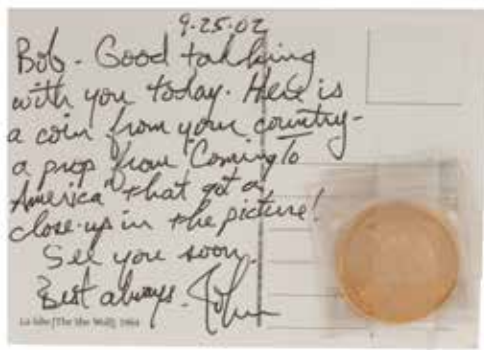 9.25.02
Bob - Good talking
with you today. Here is
a coin from your country -
a prop from "Coming To
America" that got a
close-up in the picture!
See you soon.
Best always. John
La lobe [The She Wolf], 1964